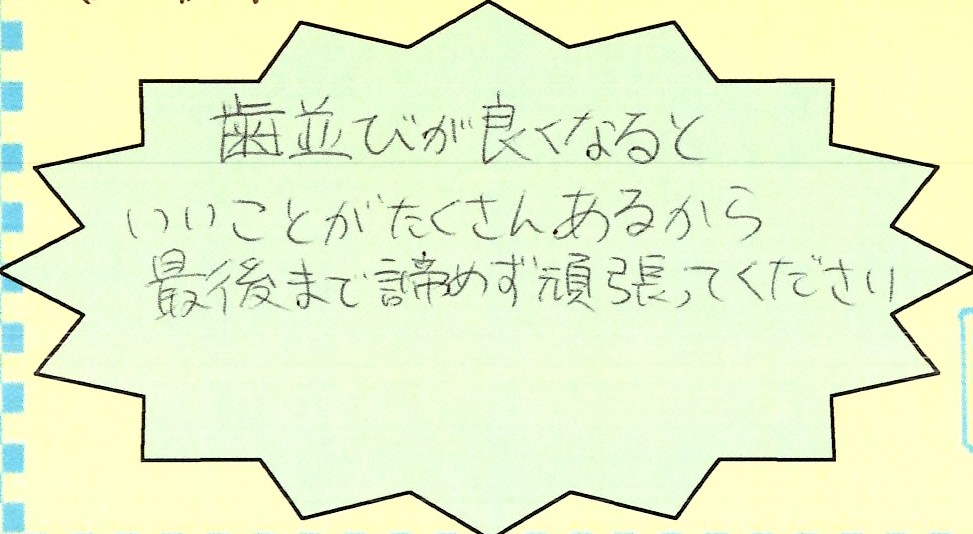 歯並びが良くなると
いいことがたくさんあるから
最後まで諦めず頑張ってください